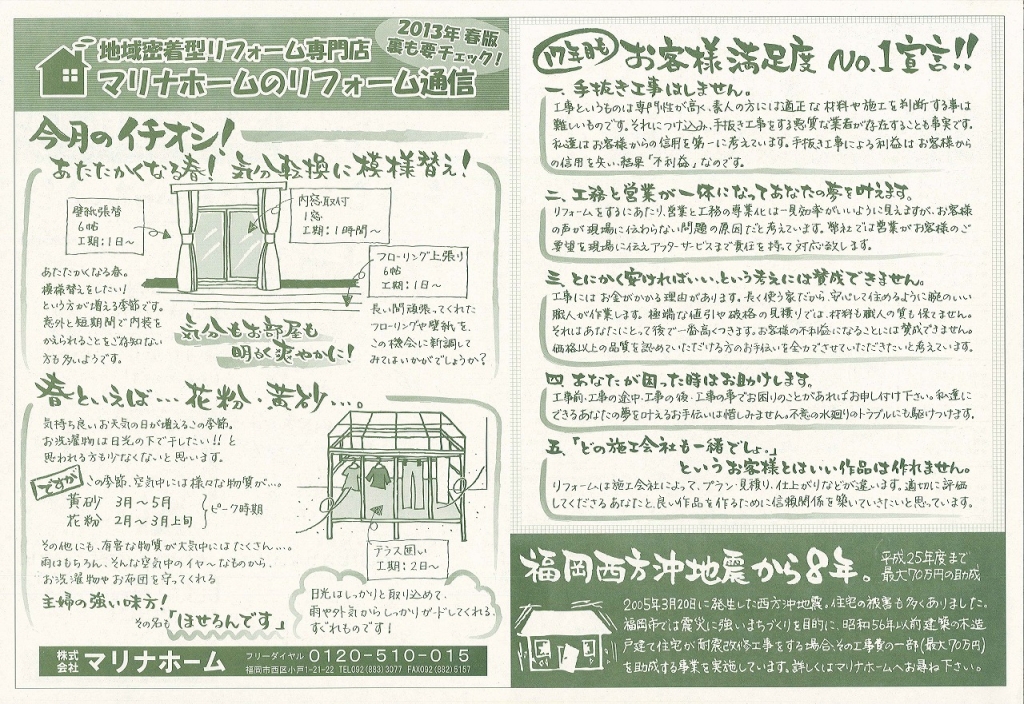 地域密着型リフォーム専門店
マリナホームのリフォーム通信
2013年 春版
裏も要チェック!
今月のイチオシ!
あたたかくなる春! 気分転換に模様替え!
壁紙張替
6帖
工期:1日~
内窓取付
1窓
工期:1時間~
フローリング上張り
6帖
工期:1日~
あたたかくなる春。
模様替えをしたい!
という方が増える季節です。
意外と短期間で内装を
かえられることをご存知ない
方も多いようです。
気分もお部屋も
明るく爽やかに!
長い間頑張ってくれた
フローリングや壁紙を、
この機会に新調して
みてはいかがでしょうか?
春といえば… 花粉・黄砂…。
気持ち良いお天気の日が増えるこの季節。
お洗濯物は日光の下で干したい!! と
思われる方も少なくないと思います。
ですが
この季節、空気中には様々な物質が…。
黄砂 3月~5月
花粉 2月~3月上旬
ピーク時期
その他にも、有害な物質が大気中にはたくさん…。
雨はもちろん、そんな空気中のイヤ~なものから、
お洗濯物やお布団を守ってくれる
主婦の強い味方!
その名も「ほせるんです」
テラス囲い
工期:2日~
日光はしっかりと取り込めて、
雨や外気からしっかりガードしてくれる
すぐれものです!
株式会社 マリナホーム
フリーダイヤル 0120-510-015
福岡市西区小戸1-21-22 TEL092(883)3077 FAX092(882)5157
17年目も お客様満足度 No.1宣言!!
一、手抜き工事はしません。
工事というものは専門性が高く、素人の方には適正な材料や施工を判断する事は
難しいものです。それにつけ込み、手抜き工事をする悪質な業者が存在することも事実です。
私達はお客様からの信用を第一に考えています。手抜き工事による利益はお客様から
の信用を失い、結果「不利益」なのです。
二、工務と営業が一体になってあなたの夢を叶えます。
リフォームをするにあたり、営業と工務の専業化は一見効率がいいように見えますが、お客様
の声が現場に伝わらない問題の原因だと考えています。弊社では営業がお客様のご
要望を現場に伝えアフターサービスまで責任を持って対応致します。
三、とにかく安ければいい、という考えには賛成できません。
工事にはお金がかかる理由があります。長く使う家だから、安心して住めるように腕のいい
職人が作業します。極端な値引や破格の見積りでは、材料も職人の質も保てません。
それはあなたにとって後で一番高くつきます。お客様の不利益になることには賛成できません。
価格以上の品質を認めていただける方のお手伝いを全力でさせていただきたいと考えています。
四、あなたが困った時はお助けします。
工事前・工事の途中・工事の後・工事の事でお困りのことがあればお申し付け下さい。私達に
できるあなたの夢を叶えるお手伝いは惜しみません。不意の水廻りのトラブルにも駆けつけます。
五、「どの施工会社も一緒でしょ。」
というお客様とはいい作品は作れません。
リフォームは施工会社によって、プラン・見積り、仕上がりなどが違います。適切に評価
してくださるあなたと、良い作品を作るために信頼関係を築いていきたいと思っています。
福岡西方沖地震から8年。
平成25年度まで
最大70万円の助成
2005年3月20日に発生した西方沖地震。住宅の被害も多くありました。
福岡市では震災に強いまちづくりを目的に、昭和56年以前建築の木造
戸建て住宅が耐震改修工事をする場合、その工事費の一部(最大70万円)
を助成する事業を実施しています。詳しくはマリナホームへお尋ね下さい。